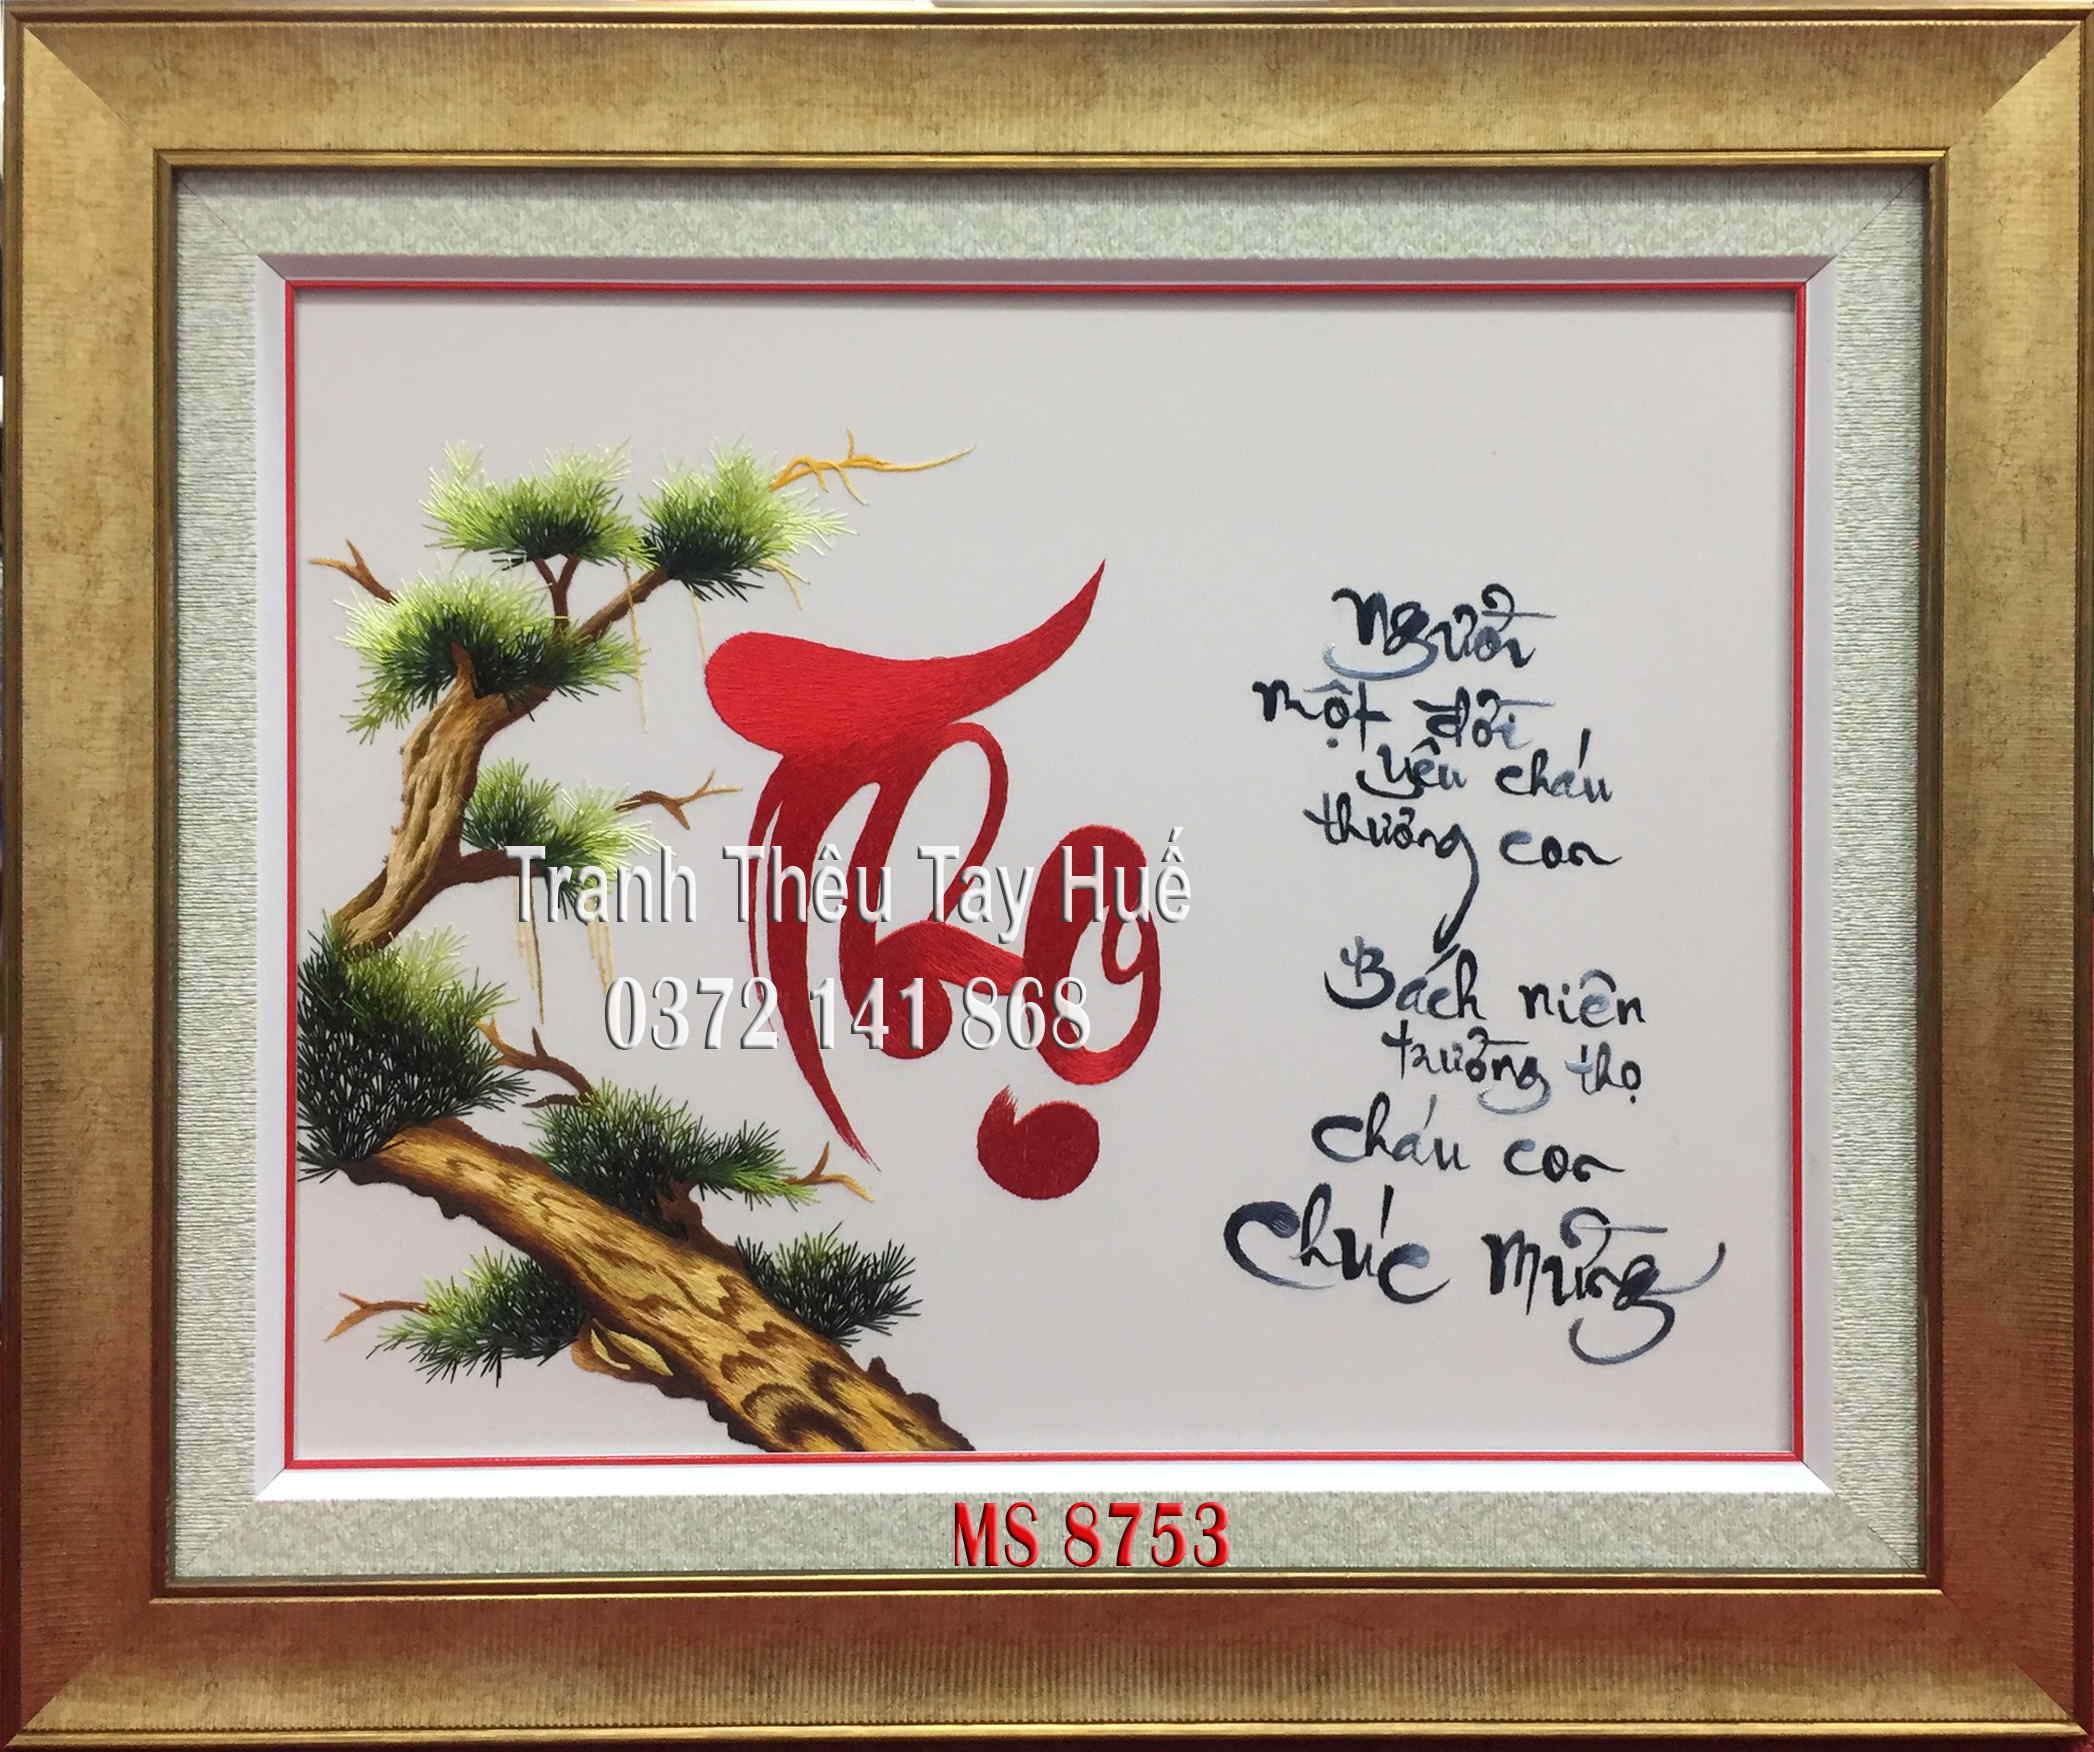 Thọ
Người
một đời
yêu cháu
thương con
Bách niên
trường thọ
cháu con
Chúc mừng
Tranh Thêu Tay Huế
0372 141 868
MS 8753